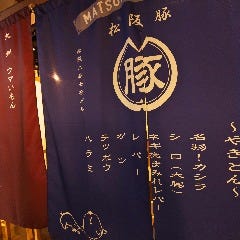 MATSU
松阪豚
豚
〜やきとん〜
名物!カシラ
シロ(大腸)
ネギまみれレバー
レバー
ガツ
テッポウ
ハラミ
ウマいもん